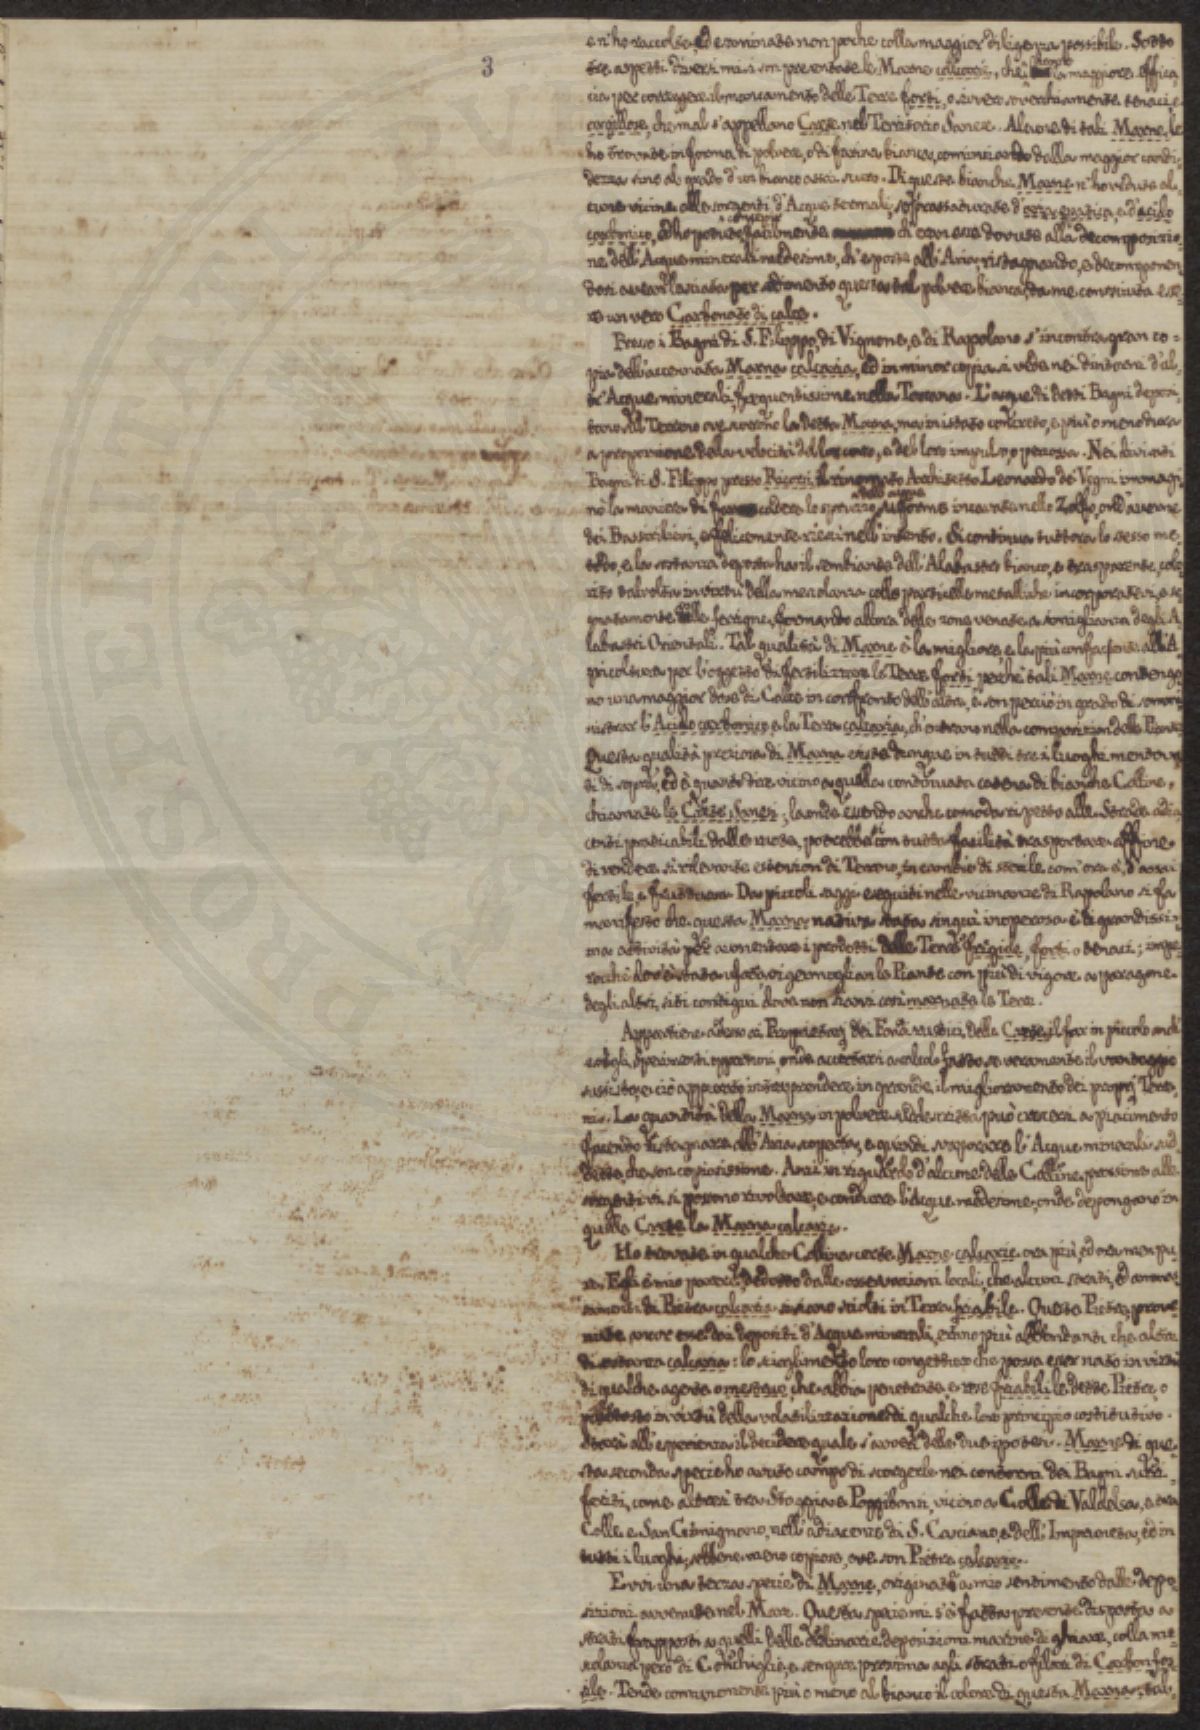 3
e n'ho raccolse, ed esaminate non poche colla maggior diligenza possibile. Sotto
tre aspetti diversi mi si son presentate le Marne calcarie, che la maggiore effica-
cia per correggere il mancamento delle Terre forti, o sivvero soverchiamente tenaci, e
argillose, che mal s'appellano Crete nel Territorio Sanese. Alcune di tali Marne, le
ho trovate in forma di polvere, o di farina bianca, cominciando dalla maggior candi-
dezza sino al grado d'un bianco assai scuro. Di queste bianche Marne n'ho vedute al-
cune vicine alle sorgenti d'Acque termali, soprassaturate d' e d'acido
carbonico, ed ho potuto facilmente ch'esse eran dovute alla decomposizio-
ne dell'Acque minerali medesime, ch'esposte all'Aria, ristagnando, e decomponen-
dosi avean lasciata per sedimento questa tal polvere bianca, da me conosciuta esse-
re un vero Carbonato di calce.
Presso i Bagni di S. Filippo, di Vignone, e di Rapolano s'incontra gran co-
pia dell'accennata Marna calcaria, ed in minor coppia si vede nei dintorni d'al-
tr'Acque minerali, frequentissime nella Toscana. L'acque di detti Bagni depon-
gono sul Terreno ove scorrono la detta Marna, ma in istato concreto, e più o meno dura
a proporzione della velocità del loro corso, e del loro impulso, o percossa. Nei divisati
Bagni di S. Filippo presso Radicofani, il rinomato Architetto Leonardo de' Vegni immagi-
nò la maniera di far cadere lo spruzzo dell'acqua su forme incavate nello Zolfo, ond'averne
dei Bassirilievi, e felicemente riescì nell'intento. Si continua tuttora lo stesso me-
todo, e la sostanza deposta ha il sembiante dell'Alabastro bianco, e trasparente, colo-
rito talvolta in virtù della mescolanza colle particelle metalliche incorporatevi, e se-
gnatamente delle ferrigne, formando allora delle zone venate a somiglianza degli A-
labastri Orientali. Tal qualità di Marne è la migliore, e la più confacente all'A-
gricoltura per l'oggetto di fertilizzar le Terre forti, perchè tali Marne contengo-
no una maggior dose di Calce in confronto dell'altre, e son perciò in grado di sommi-
nistrar l'Acido carbonico, e la Terra calcaria, ch'entrano nella composizion delle Piante.
Questa qualità preziosa di Marna esiste dunque in tutti tre i luoghi mentova-
ti di sopra, ed è quanto dire vicino a quella continuata catena di bianche Colline,
chiamate le Crete Sanesi; laonde essendo anche comoda rispetto alle Strade adia-
centi praticabili dalle ruote, potrebbesi con tutta facilità trasportare affine
di rendere sì rilevante estension di Terreno, in cambio di sterile com'ora è, d'assai
fertile e fruttuosa. Da piccoli saggi eseguiti nelle vicinanze di Rapolano si fa
manifesto che questa Marna nativa stata sinquì inoperosa è di grandissi-
ma attività per aumentare i prodotti delle Terre frigide, forti, o tenaci; impe-
rocchè dov'è stata usata vi germoglian le Piante con più di vigore a paragone
degli altri siti contigui dove non siansi così marnate le Terre.
Appartiene adesso ai Proprietarj dei Fondi rustici delle Crete il far in piccolo anch'
essi gli sperimenti opportuni, onde accertarsi a calcol fatto, se veramente il vantaggio
sussista, e ciò appurato intraprendere in grande il miglioramento dei proprj Terre-
ni. La quantità della Marna in polvere può crescersi a piacimento
facendo ristagnare all'Aria aperta, e quindi svaporare l'Acque minerali sud-
dette, che son copiosissime. Anzi in riguardo d'alcune delle Colline prossime alle
sorgenti vi si posson rivoltare, e condurre l'Acque medesime, onde depongano in
quelle Crete la Marna calcaria.
Ho trovate in qualche Collina certe Marne calcarie ora più, ed ora men pu-
re. Egli è mio parere, dedotto dalle osservazioni locali, che alcuni strati, ed ammas-
samenti di Pietra calcaria si siano sciolti in Terra friabile. Queste Pietre, prove-
nute ancor esse dai depositi d'Acque minerali, erano più abbondanti che altre
di sostanza calcaria: lo scioglimento loro congetturo che possa esser nato in virtù
di qualche agente o mestruo, che abbia penetrate, e rese friabili le dette Pietre, o
piuttosto in virtù della volatilizzazione di qualche loro principio costitutivo.
Starà all'esperienza il decidere quale s'avveri delle due ipotesi. Marne di que-
sta seconda specie ho avuto campo di scorgerle nei contorni dei Bagni sudd-
feriti, come altresì tra Staggia e Poggibonsi, vicino a Colle di Valdelsa, e tra
Colle e San Gimignano, nell'adiacenze di S. Casciano, e dell'Impruneta, ed in
tutti i luoghi, sebbene meno copiose, ove son Pietre calcarie.
Evvi una terza specie di Marne, originata a mio sentimento dalle depo-
sizioni avvenute nel Mare. Questa specie mi s'è fatta presente disposta a
strati frapposti a quelli delle ordinarie deposizioni marine di mare, colla me-
scolanza però di Conchiglie, e sempre prossima agli strati, o filoni di Carbon fos-
sile. Tende comunemente più o meno al bianco il colore di questa Marna; tal-